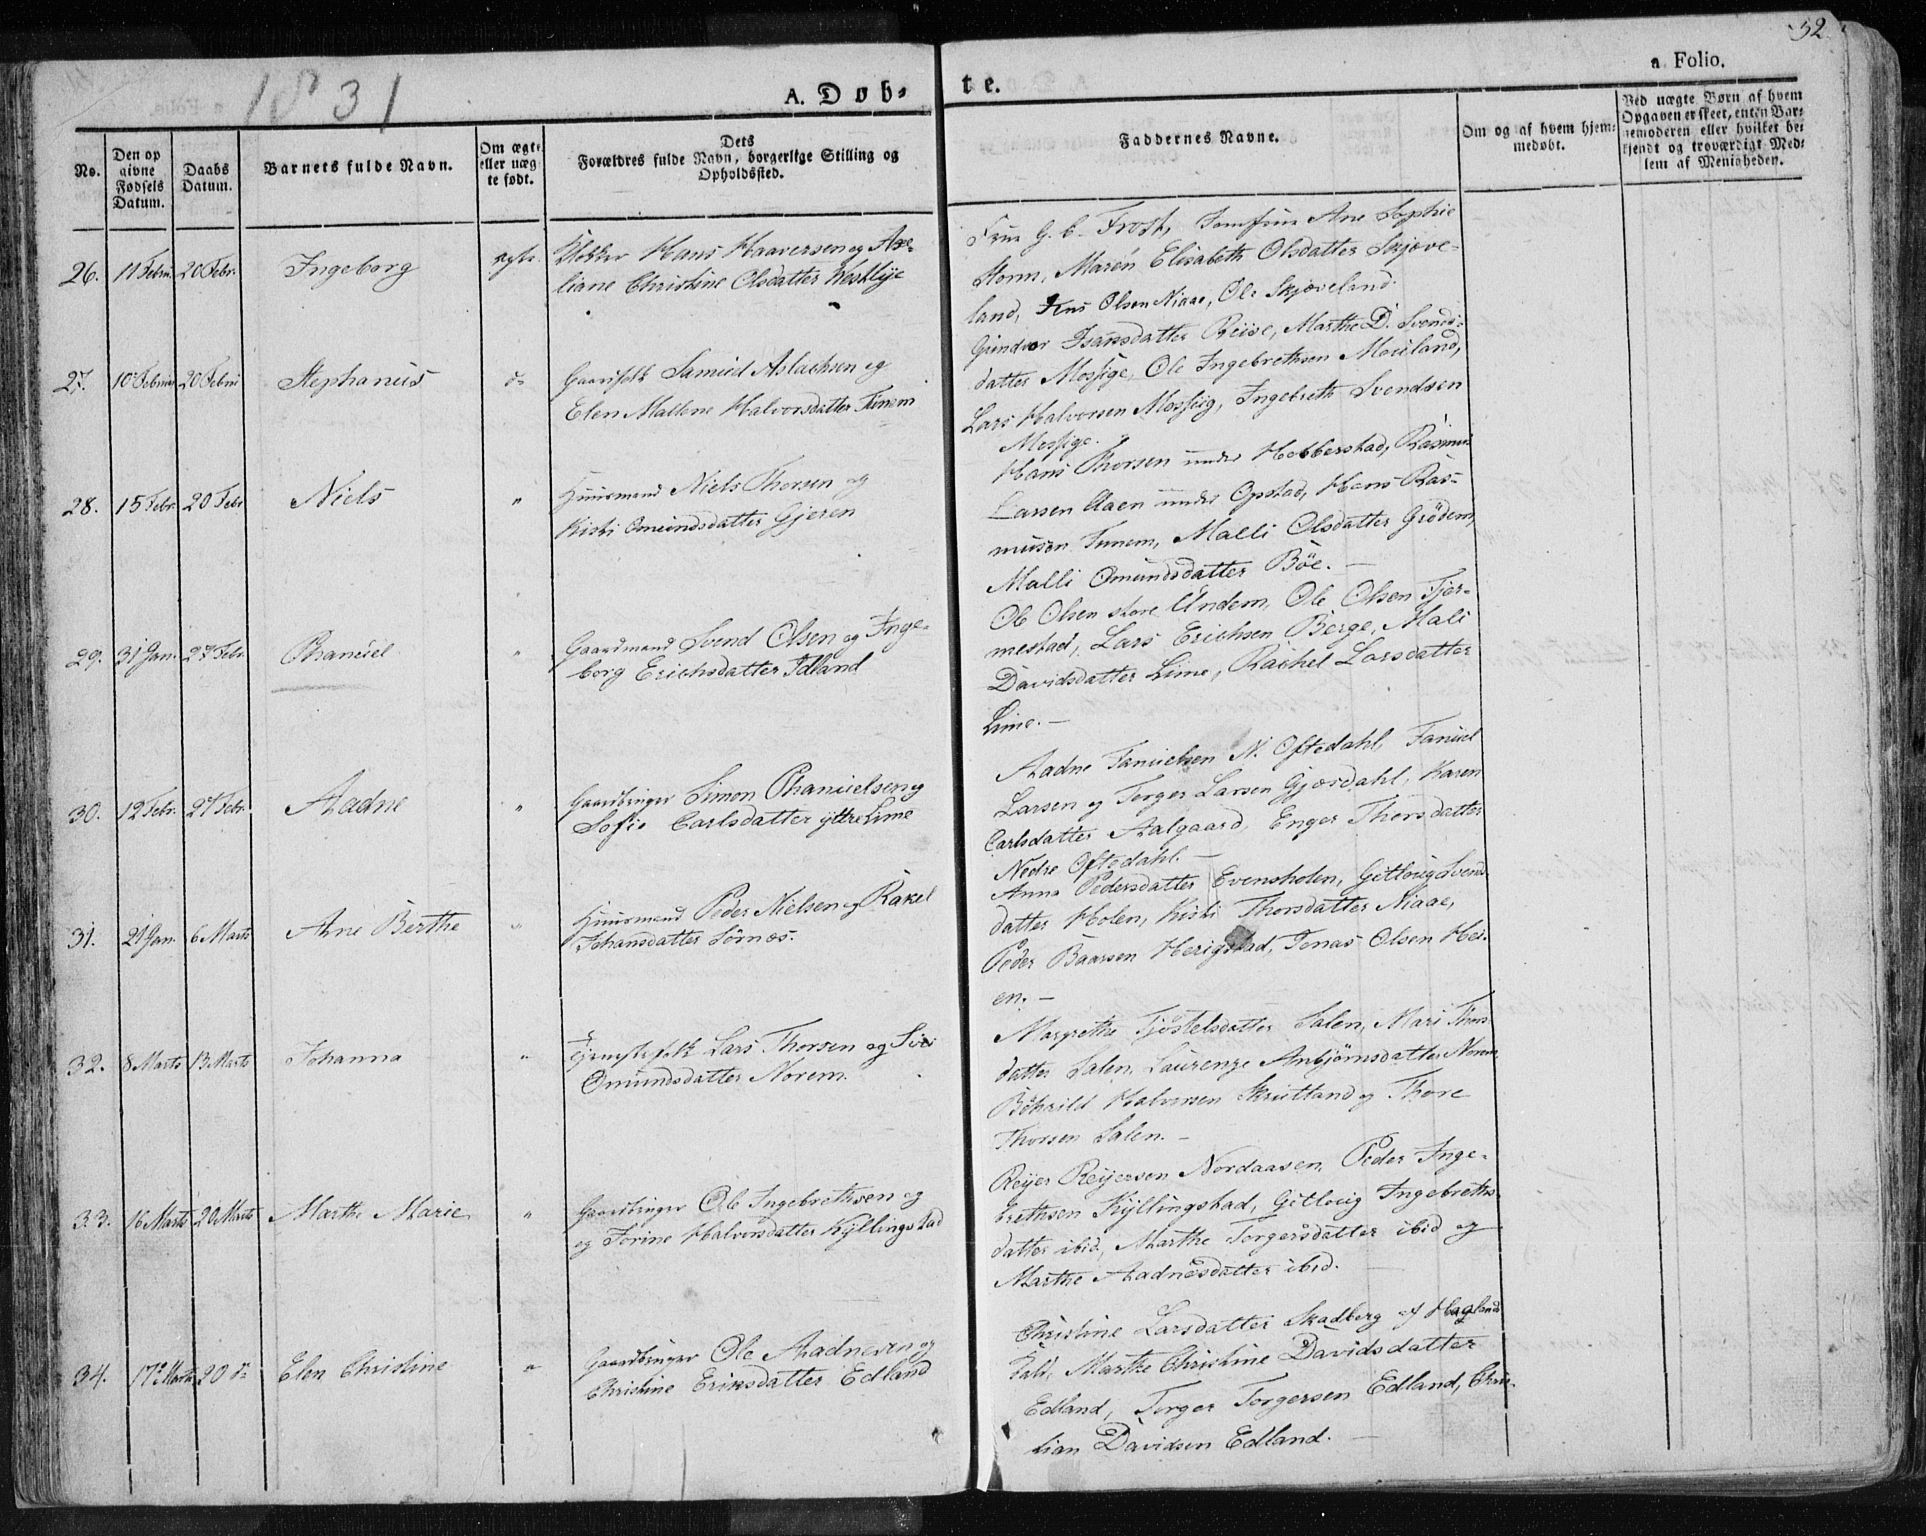 32
1831
A. Døb-
te.
a Folio.
No.
Den op
givne
Fødsels
Datum.
Daabs
Datum.
Barnets fulde Navn.
Om ægte
eller uæg
te født.
Dets
Forældres fulde Navn, borgerlige Stilling og
Opholdssted.
Faddernes Navne.
Om og af hvem hjem-
medøbt.
Ved uægte Børn af hvem
Opgaven er skeet, enten Bar-
nemoderen eller hvilket be-
kjendt og troværdigt Med-
lem af Menigheden.
26. 11 Febru. 20 Febr. Ingeborg ægte. Klokker Hans Haaversen og Axe-
liane Christine Olsdatter Westlye
Frue G. C. Frost, Jomfrue Ane Sophie
Storm, Maren Elisabeth Olsdatter Skjæve-
land, Jens Olsen Niaae, Ole Skjæveland.
27. 10 Februar 20 Febru Stephanus do Gaardfolk Samuel Aslachsen og
Elen Mallene Halvorsdatter Tunem
Gundvor Isansdatter Reise, Marthe D. Svends-
datter Mossige, Ole Ingebrethsen Mouland,
Lars Halvorsen Mossig, Ingebreth Svendsen
Mossige.
28. 15 Febr. 20 Febr Niels " Huusmand Niels Thorsen og
Kisti Omundsdatter Gjeren
Hans Thorsen under Hobberstad, Rasmus
Larsen Aaen under Opstad, Hans Ras-
musen Tunem, Malli Olsdatter Grødem,
Malli Omundsdatter Böe. —
29. 31 Jan. 27 Febr. Phanuel " Gaardmand Svend Olsen og Inge-
borg Erichsdatter Idland
Ole Olsen store Undem, Ole Olsen Tjer-
mestad, Lars Erichsen Berge, Mali
Davidsdatter Lime, Rachel Larsdatter
Lime. —
30. 12 Febr. 27 Febr. Aadne " Gaardbruger Simon Phanuelsen og
Sofie Carlsdatter yttre Lime
Aadne Fanuelsen N. Oftedahl, Fanuel
Larsen og Torger Larsen Gjæsdahl, Karen
Carlsdatter Aalgaard, Enger Thorsdatter
Nedre Oftedahl. —
31. 21 Jan. 6 Marts Ane Berthe " Huusmand Peder Nielsen og Rakel
Johansdatter Sörnæs.
Anna Pedersdatter Evensholen, Gitloug Svends
datter Holen, Kisti Thorsdatter Niaae,
Peder Baarsen Herigstad, Jonas Olsen Hei-
en. —
32. 8 Marts 13 Marts Johanna " Lars Thorsen og Siri
Omundsdatter Norem.
Margrethe Tjöstelsdatter Salen, Mari Thors
datter Salen, Laurenze Anbjörnsdatter Norem
Halvorsen Skrutland og Thore
Thorsen Salen. —
33. 16 Marts 20 Marts Marthe Marie " Gaardbruger Ole Ingebrethsen og
og Torine Halvorsdatter Kyllingstad
Reyer Reyersen Nordaasen, Peder Inge-
brethsen Kyllingstad, Gitloug Ingebreths
datter ibid, Marthe Torgersdatter ibid og
Marthe Aadnesdatter ibid.
34. 17de Marts 20 do Elen Christine " Gaardbruger Ole Aadnesen og
Christine Eriksdatter Edland
Christine Larsdatter Skadberg af Hagland
Sald, Marthe Christine Davidsdatter
Edland, Torger Torgersen Edland, Chris-
tian Davidsen Edland. —